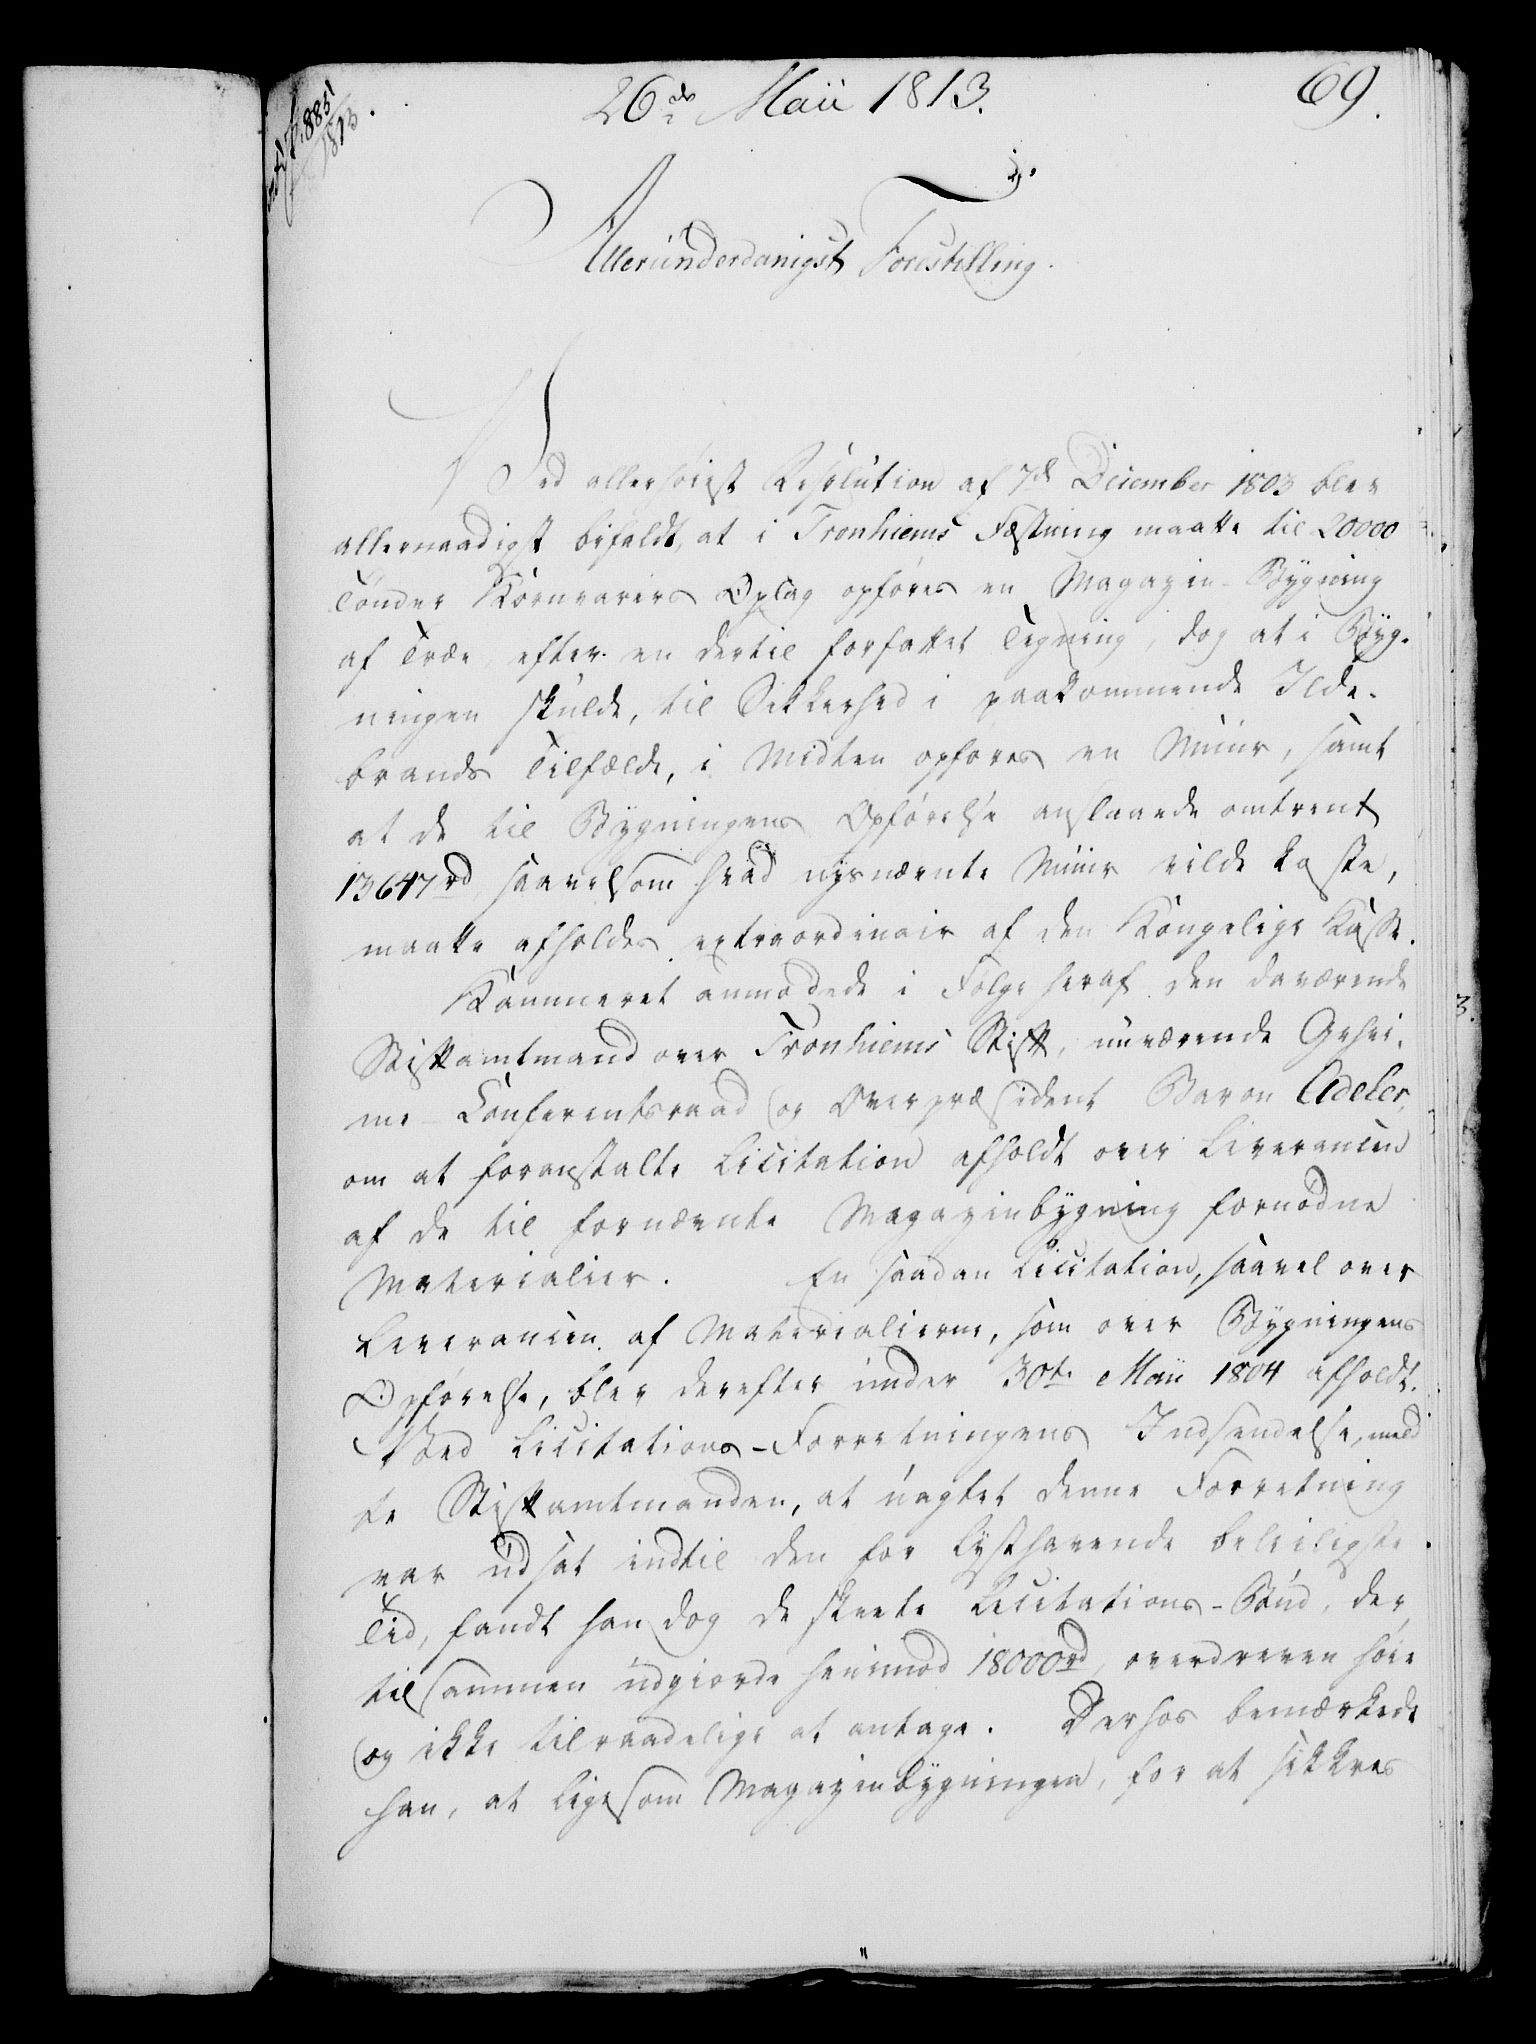 26de Maii 1813.
69.
8851
1813.
Allerunderdanigst Forestilling.
Ved allerhöiest Resolution af 7de December 1803 blev
allernaadigst bifaldt, at i Tronhiems Fæstning maatte til 20000
Tönder Kornvarers Oplag opföres en Magazin-Bygning
af Træe, efter en dertil forfattet Tegning, dog at i Byg-
ningen skulde, til Sikkerhed i paakommende Ilde-
brands Tilfælde, i Midten opföres en Muur, samt
at de til Bygningens Opförelse anslaaede omtrent
13647rd, saavelsom hvad nysnævnte Muur vilde koste,
maatte afholdes extraordinair af den Kongelige Kasse.
Kammeret anmodede i Fölge heraf den daværende
Stiftamtmand over Tronhiems Stift, nuværende Gehei-
me-Conferentsraad og Overpræsident Baron Adeler,
om at foranstalte Licitation afholdt over Leverancen
af de til fornævnte Magazinbygning fornödne
Materialier. En saadan Licitation, saavel over
Leverancen af Materialierne, som over Bygningens
Opförelse, blev derefter under 30te Maii 1804 afholdt.
Ved Licitations-Forretningens Indsendelse, meld
te Stiftamtmanden, at uagtet denne Forretning
var udsat indtil den for Lysthavende beleiligste
Tid, fandt han dog de skeete Licitations-Bud, der
tilsammen udgiorde henimod 18000rd, overdreven höie
og ikke tilraadelige at antage. Derhos bemærkede
han, at ligesom Magazinbygningen, for at sikkres